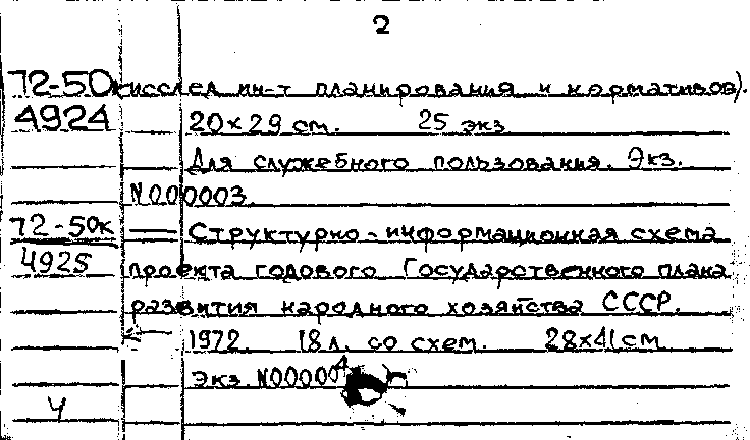 2
72-50к исслед ин-т планирования и нормативов).
4924 20×29 см. 25 экз
Для служебного пользования. Экз.
N000003.
72-50к — Структурно-информационная схема
4925 проекта годового Государственного плана
развития народного хозяйства СССР.
1972. 18 л. со схем. 28×41 см.
Экз. N000004
Ч